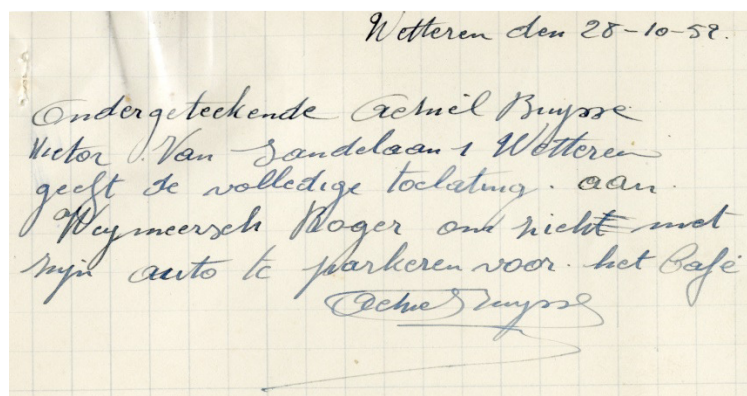 Wetteren den 28-10-59.
Ondergeteekende Achiel Buysse
Victor Van Sandelaan 1 Wetteren
geeft de volledige toelating. aan.
Weymeersch Roger om zicht met
zijn auto te parkeren voor. het Café
Achiel Buysse